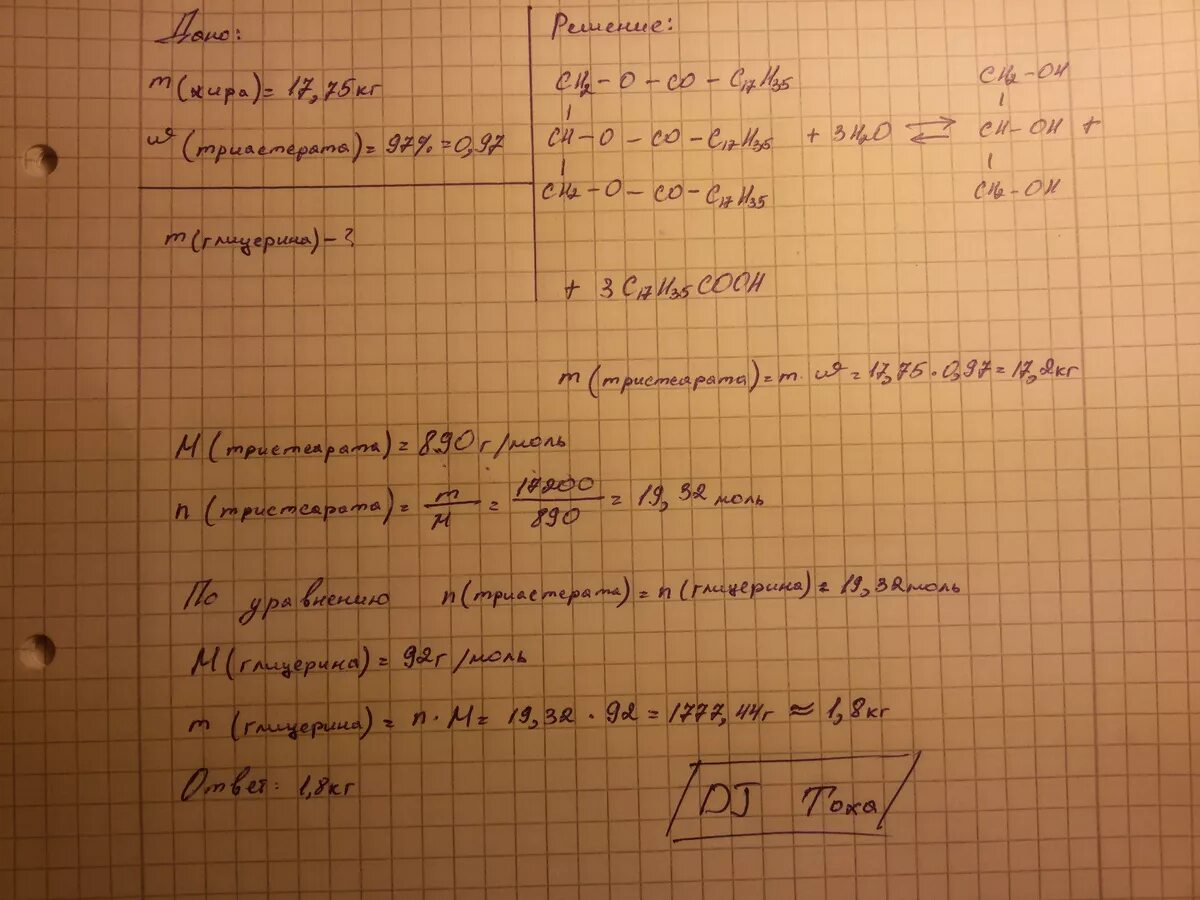 Дано:
m(жира) = 17,75кг
ω(триастерата) = 97% = 0,97
m(глицерина) - ?
Решение:
CH₂ - O - CO - C₁₇H₃₅
CH - O - CO - C₁₇H₃₅ + 3H₂O ⇄
CH₂ - O - CO - C₁₇H₃₅
CH₂ - OH
CH - OH +
CH₂ - OH
+ 3C₁₇H₃₅COOH
m(тристеарата) = m·ω = 17,75·0,97 = 17,2кг
M(тристеарата) = 890г/моль
n(тристеарата) = m/M = 17200/890 = 19,32моль
По уравнению n(триастерата) = n(глицерина) = 19,32моль
M(глицерина) = 92г/моль
m(глицерина) = n·M = 19,32·92 = 1777,44г ≈ 1,8кг
Ответ: 1,8кг
DJ Тоха